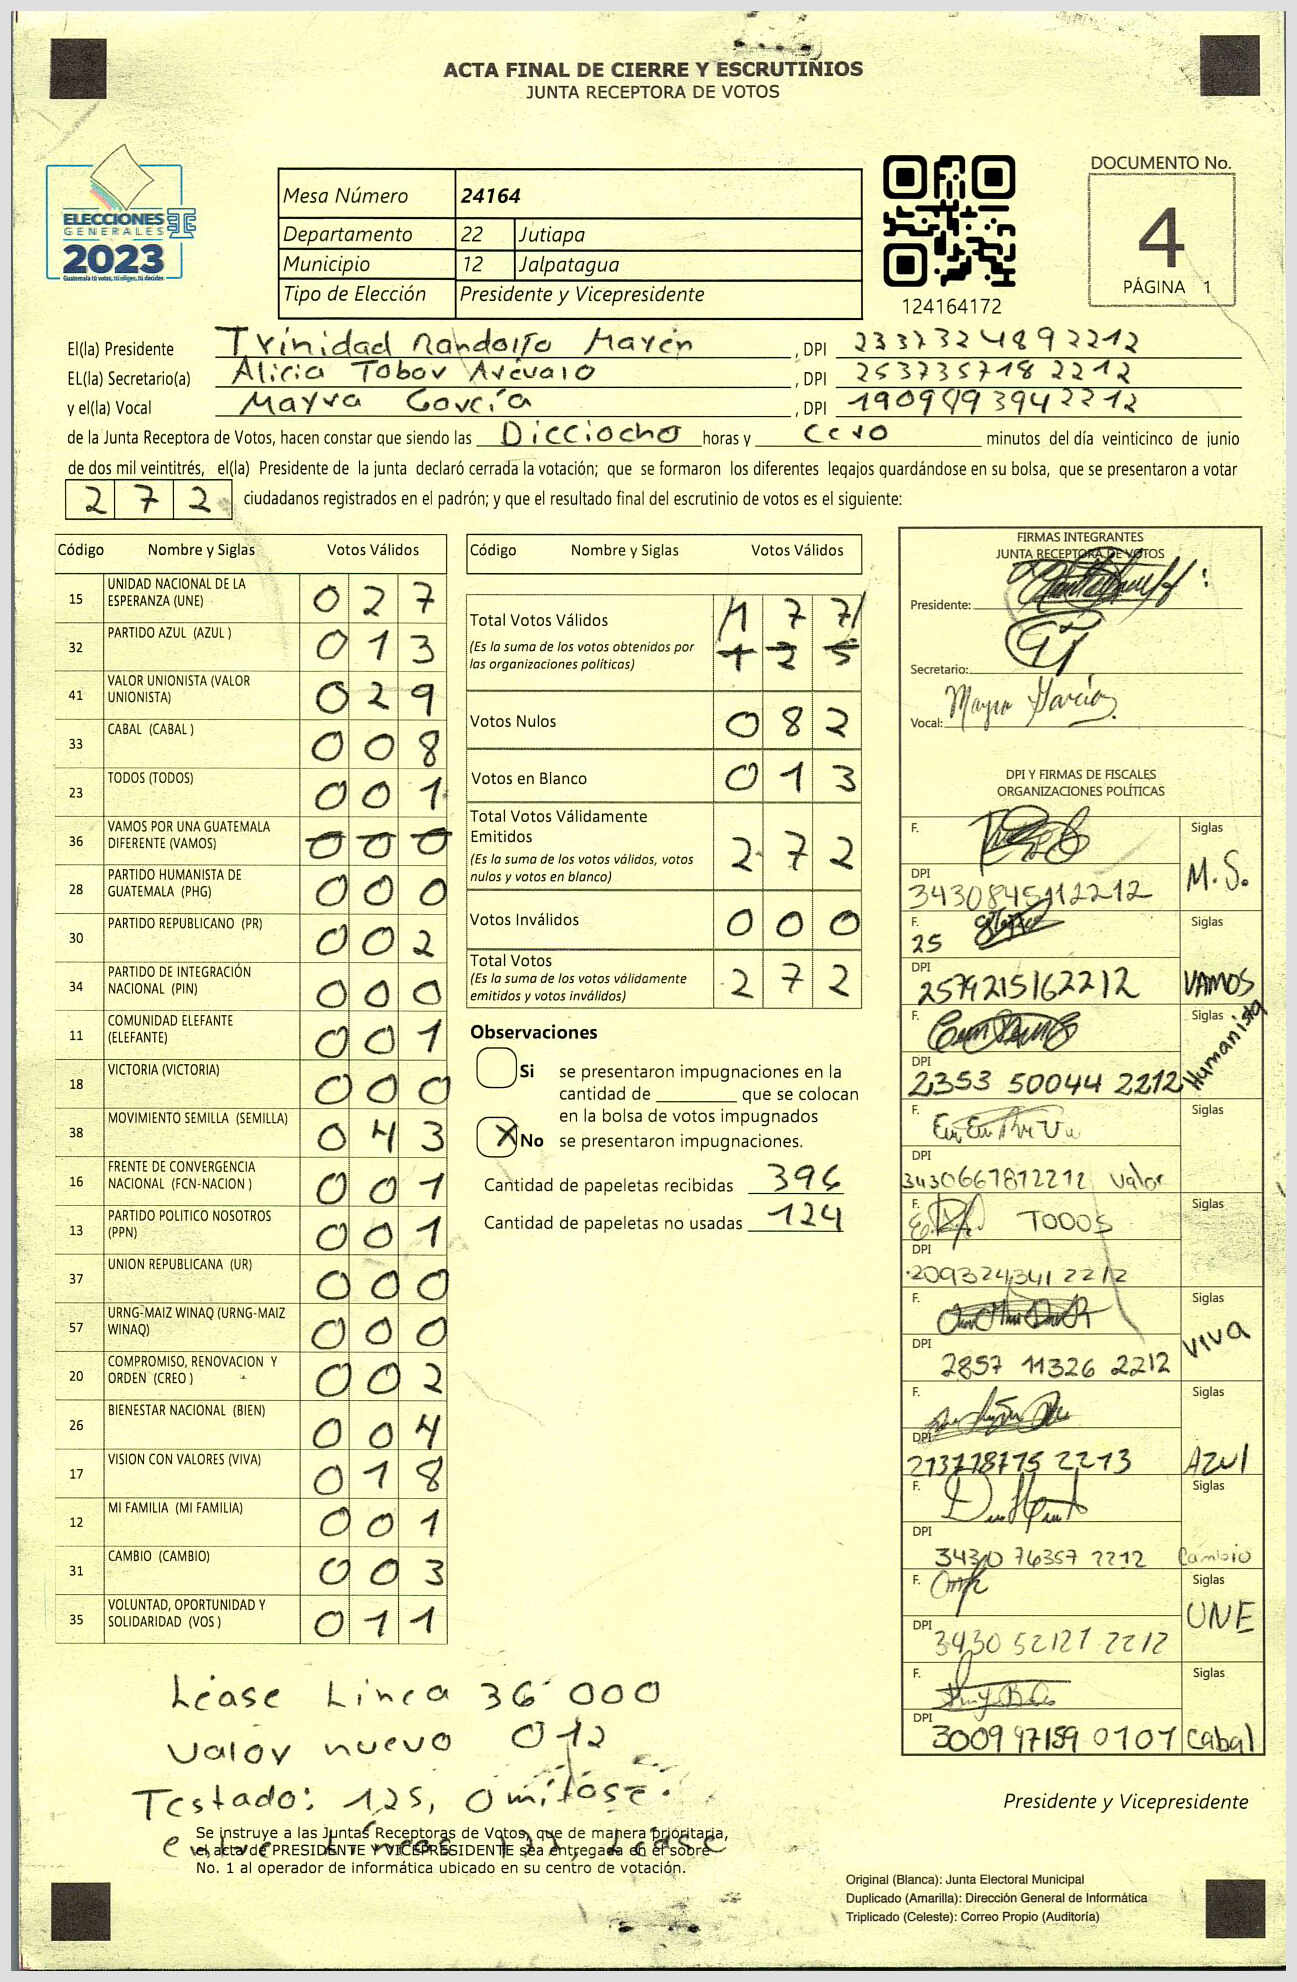 ACTA FINAL DE CIERRE Y ESCRUTINIOS
JUNTA RECEPTORA DE VOTOS
ELECCIONES
GENERALES
2023
Guatemala tú votas, tú eliges, tú decides
Mesa Número 24164
Departamento 22 Jutiapa
Municipio 12 Jalpatagua
Tipo de Elección Presidente y Vicepresidente
124164172
DOCUMENTO No.
4
PÁGINA 1
El(la) Presidente Trinidad Randolfo Mayen , DPI 2337324892212
EL(la) Secretario(a) Alicia Tobar Arévalo , DPI 2537357182212
y el(la) Vocal Mayra García , DPI
de la Junta Receptora de Votos, hacen constar que siendo las Dieciocho horas y Cero minutos del día veinticinco de junio
de dos mil veintitrés, el(la) Presidente de la junta declaró cerrada la votación; que se formaron los diferentes legajos guardándose en su bolsa, que se presentaron a votar
272 ciudadanos registrados en el padrón; y que el resultado final del escrutinio de votos es el siguiente:
Código Nombre y Siglas Votos Válidos
15 UNIDAD NACIONAL DE LA ESPERANZA (UNE) 027
32 PARTIDO AZUL (AZUL ) 013
41 VALOR UNIONISTA (VALOR UNIONISTA) 029
33 CABAL (CABAL ) 008
23 TODOS (TODOS) 001
36 VAMOS POR UNA GUATEMALA DIFERENTE (VAMOS) 000
28 PARTIDO HUMANISTA DE GUATEMALA (PHG) 000
30 PARTIDO REPUBLICANO (PR) 002
34 PARTIDO DE INTEGRACIÓN NACIONAL (PIN) 000
11 COMUNIDAD ELEFANTE (ELEFANTE) 001
18 VICTORIA (VICTORIA) 000
38 MOVIMIENTO SEMILLA (SEMILLA) 043
16 FRENTE DE CONVERGENCIA NACIONAL (FCN-NACION ) 001
13 PARTIDO POLITICO NOSOTROS (PPN) 001
37 UNION REPUBLICANA (UR) 000
57 URNG-MAIZ WINAQ (URNG-MAIZ WINAQ) 000
20 COMPROMISO, RENOVACION Y ORDEN (CREO ) 002
26 BIENESTAR NACIONAL (BIEN) 004
17 VISION CON VALORES (VIVA) 018
12 MI FAMILIA (MI FAMILIA) 001
31 CAMBIO (CAMBIO) 003
35 VOLUNTAD, OPORTUNIDAD Y SOLIDARIDAD (VOS ) 011
Código Nombre y Siglas Votos Válidos
Total Votos Válidos 177
(Es la suma de los votos obtenidos por las organizaciones políticas) 125
Votos Nulos 082
Votos en Blanco 013
Total Votos Válidamente Emitidos 272
(Es la suma de los votos válidos, votos nulos y votos en blanco)
Votos Inválidos 000
Total Votos 272
(Es la suma de los votos válidamente emitidos y votos inválidos)
Observaciones
Si se presentaron impugnaciones en la
cantidad de que se colocan
en la bolsa de votos impugnados
X No se presentaron impugnaciones.
Cantidad de papeletas recibidas 396
Cantidad de papeletas no usadas 124
FIRMAS INTEGRANTES
JUNTA RECEPTORA DE VOTOS
Presidente:
Secretario:
Vocal: Mayra García
DPI Y FIRMAS DE FISCALES
ORGANIZACIONES POLÍTICAS
F. Siglas
DPI 3430845112212 M.S.
F. 25 Siglas
DPI 2579215162212 VAMOS
F. Siglas
DPI 2353 50044 2212 Humanista
F. Siglas
DPI 3430667872212 Valor
F. TODOS Siglas
DPI 2093243412212
F. Siglas
DPI 2857 11326 2212 VIVA
F. Siglas
DPI 213718775 2213 AZul
F. Siglas
DPI 3430 76357 2212 Cambio
F. Siglas
DPI 3430 52127 2212 UNE
F. Siglas
DPI 3009 97159 0101 Cabal
Léase Linea 36 000
Valor nuevo 012
Testado: 125, Omitase.
entre Lineas 177, Léase
Se instruye a las Juntas Receptoras de Votos, que de manera prioritaria,
el acta de PRESIDENTE Y VICEPRESIDENTE sea entregada en el sobre
No. 1 al operador de informática ubicado en su centro de votación.
Presidente y Vicepresidente
Original (Blanca): Junta Electoral Municipal
Duplicado (Amarilla): Dirección General de Informática
Triplicado (Celeste): Correo Propio (Auditoría)